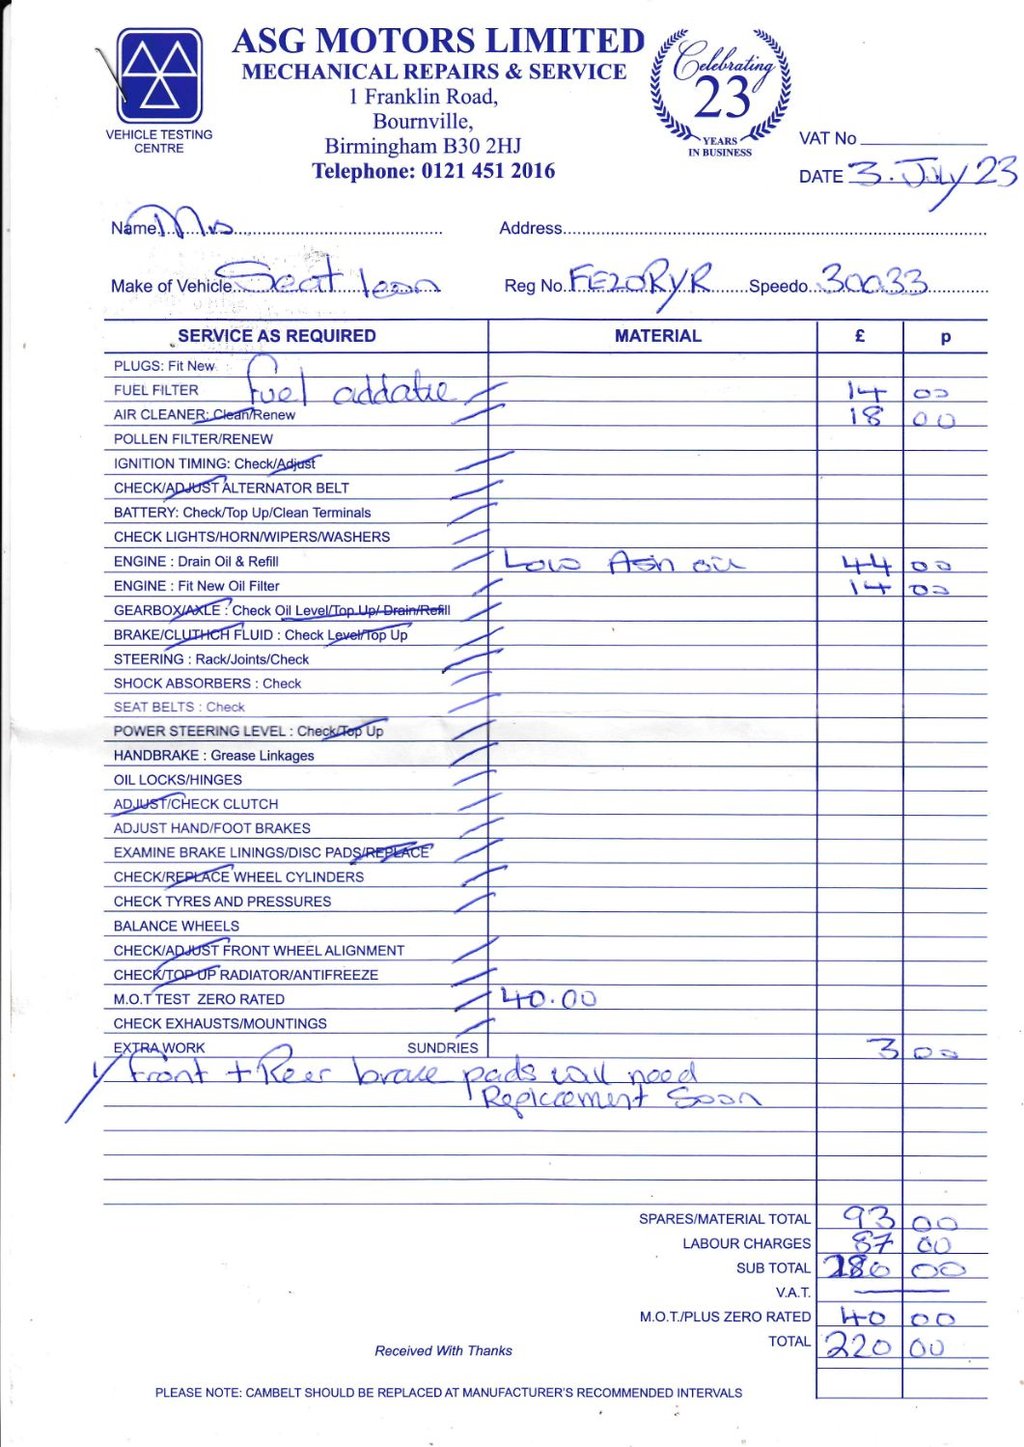 ASG MOTORS LIMITED
MECHANICAL REPAIRS & SERVICE
1 Franklin Road,
Bournville,
Birmingham B30 2HJ
Telephone: 0121 451 2016
VEHICLE TESTING
CENTRE
Celebrating
23
YEARS
IN BUSINESS
VAT No
DATE 3. July 23
Name Mrs Address
Make of Vehicle Seat leon Reg No. FE20RYR Speedo 30033
SERVICE AS REQUIRED MATERIAL £ p
PLUGS: Fit New
FUEL FILTER Fuel addative 14 00
AIR CLEANER: Clean/Renew 18 00
POLLEN FILTER/RENEW
IGNITION TIMING: Check/Adjust
CHECK/ADJUST ALTERNATOR BELT
BATTERY: Check/Top Up/Clean Terminals
CHECK LIGHTS/HORN/WIPERS/WASHERS
ENGINE : Drain Oil & Refill Low Ash oil 44 00
ENGINE : Fit New Oil Filter 14 00
GEARBOX/AXLE : Check Oil Level/Top Up/ Drain/Refill
BRAKE/CLUTHCH FLUID : Check Level/Top Up
STEERING : Rack/Joints/Check
SHOCK ABSORBERS : Check
SEAT BELTS : Check
POWER STEERING LEVEL : Check/Top Up
HANDBRAKE : Grease Linkages
OIL LOCKS/HINGES
ADJUST/CHECK CLUTCH
ADJUST HAND/FOOT BRAKES
EXAMINE BRAKE LININGS/DISC PADS/REPLACE
CHECK/REPLACE WHEEL CYLINDERS
CHECK TYRES AND PRESSURES
BALANCE WHEELS
CHECK/ADJUST FRONT WHEEL ALIGNMENT
CHECK/TOP UP RADIATOR/ANTIFREEZE
M.O.T TEST ZERO RATED 40.00
CHECK EXHAUSTS/MOUNTINGS
EXTRA WORK SUNDRIES 3 00
1/ Front + Reer brake pads will need
Replccement Soon
SPARES/MATERIAL TOTAL 93 00
LABOUR CHARGES 87 00
SUB TOTAL 180 00
V.A.T.
M.O.T./PLUS ZERO RATED 40 00
TOTAL 220 00
Received With Thanks
PLEASE NOTE: CAMBELT SHOULD BE REPLACED AT MANUFACTURER'S RECOMMENDED INTERVALS